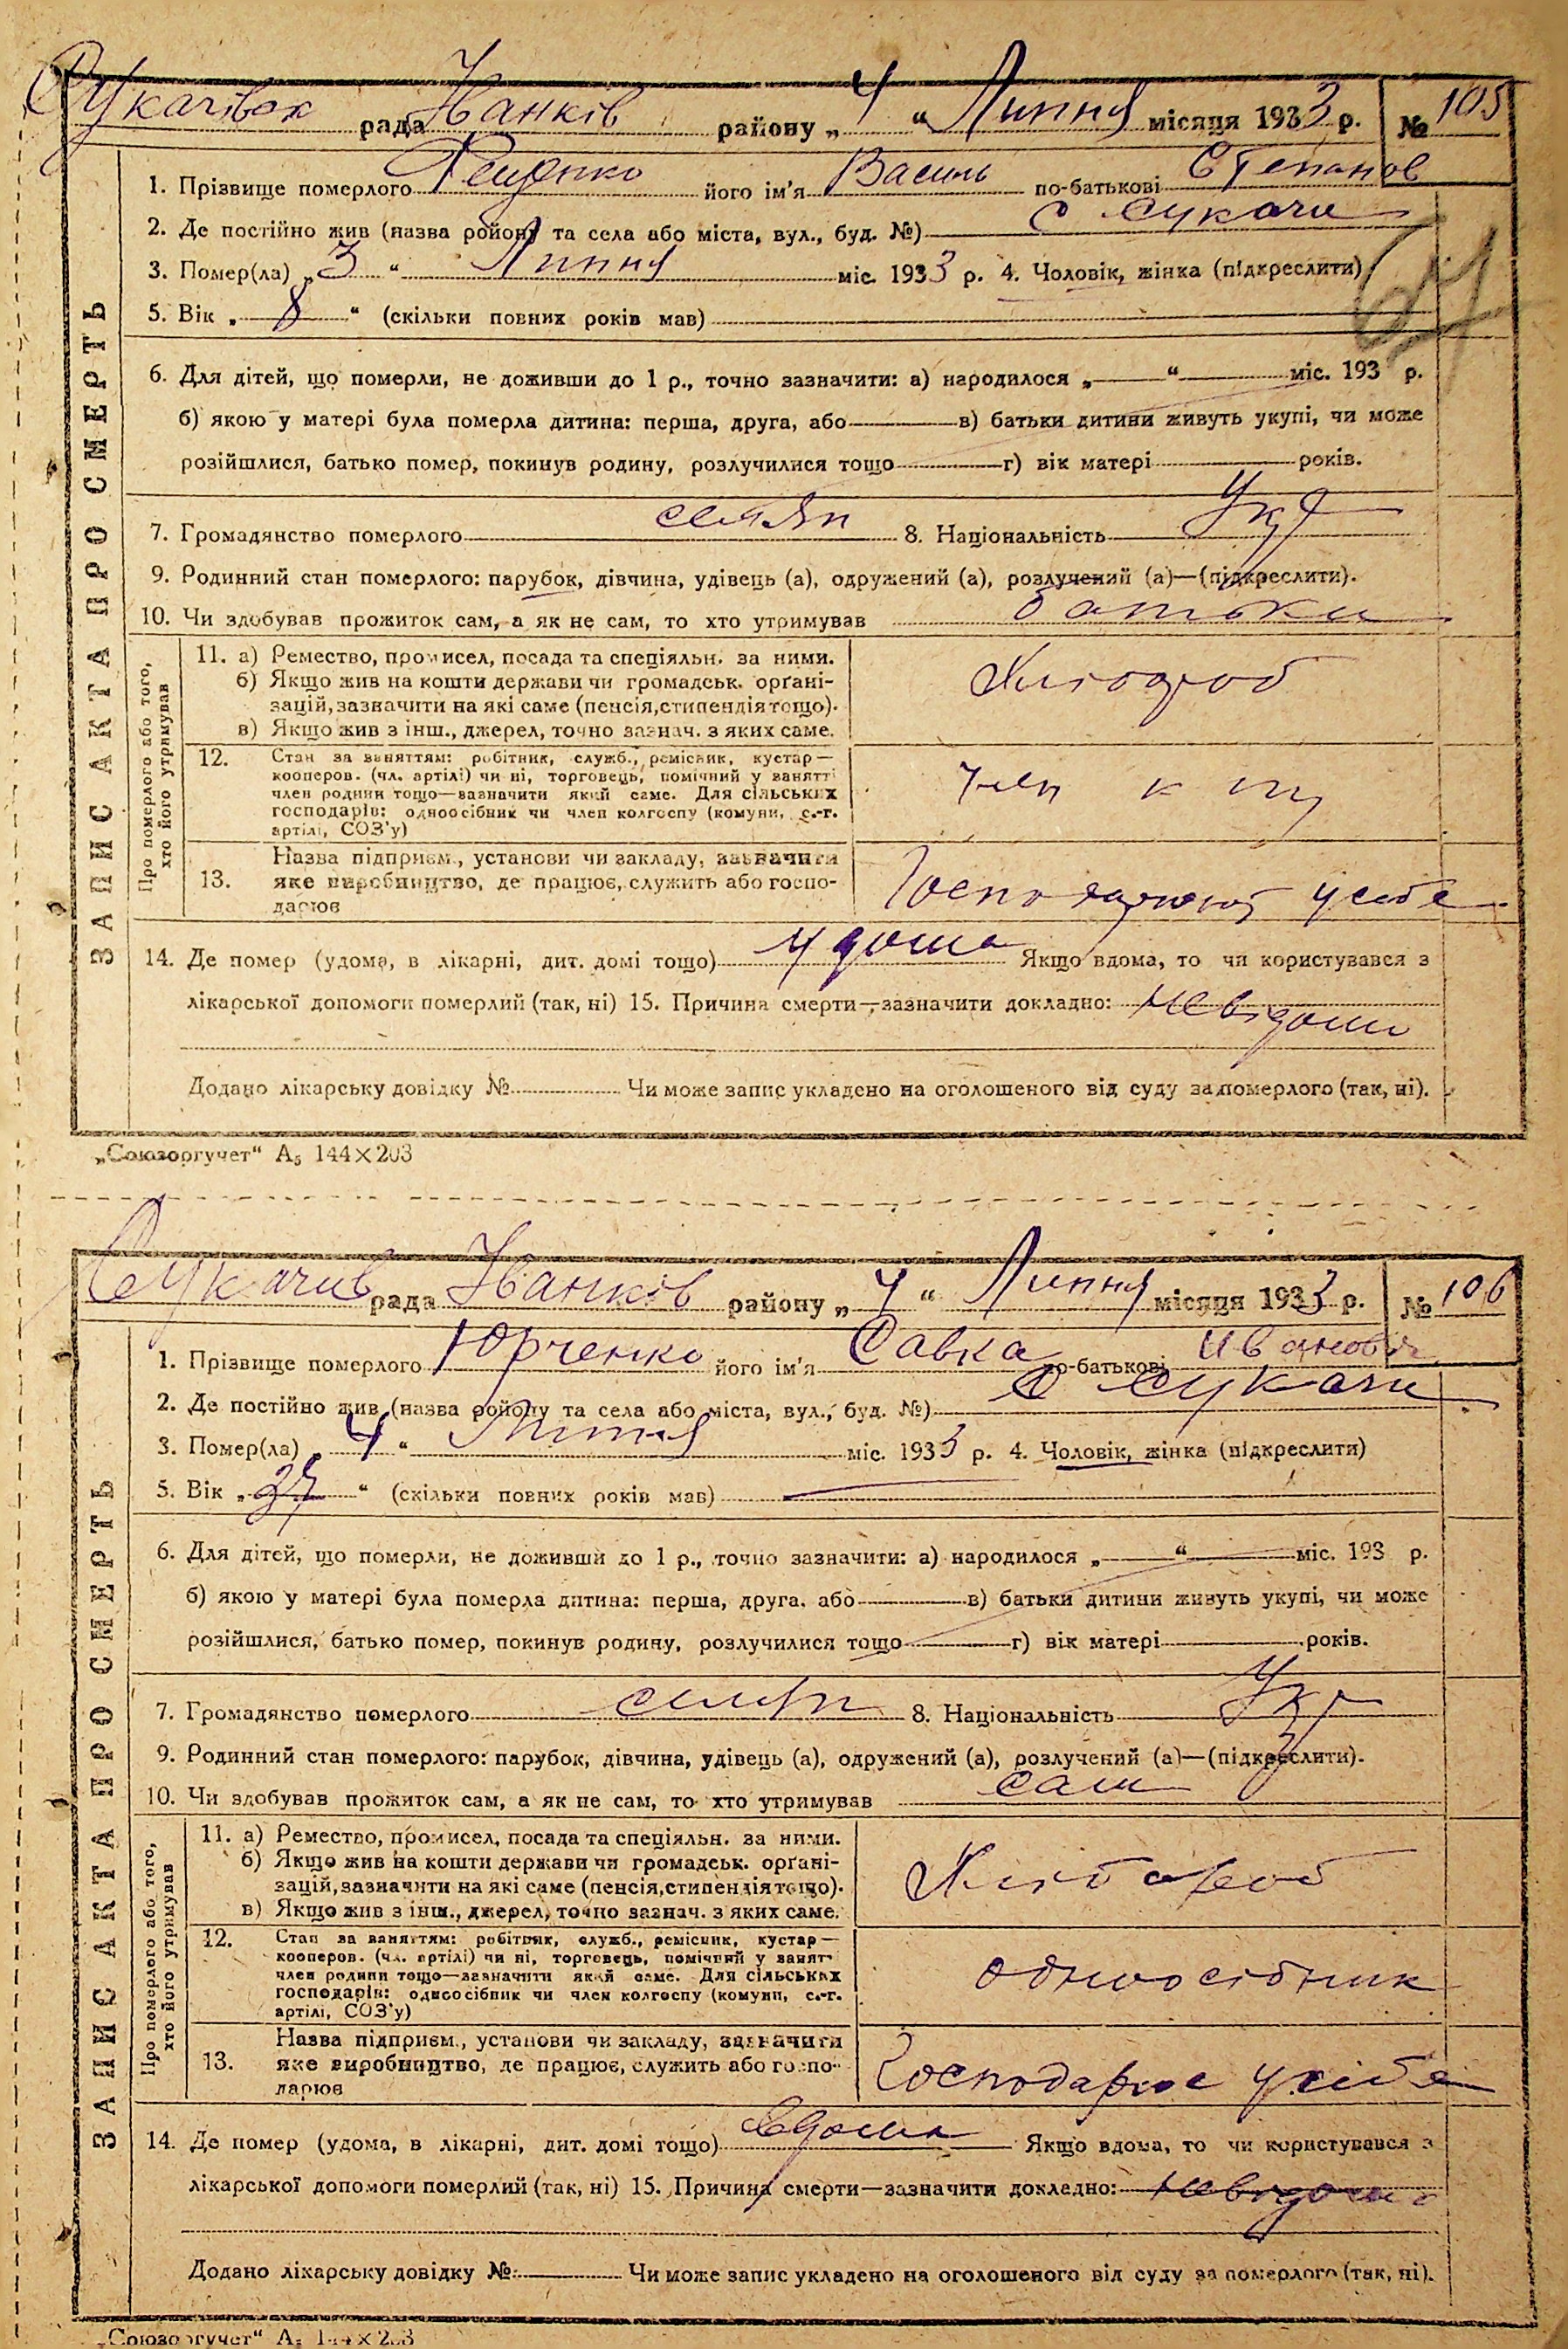 Сукачівск рада Іванків району „ 4 “ Липня місяця 1933 р. № 105
1. Прізвище померлого Рещенко його ім'я Василь по-батькові Степанов
2. Де постійно жив (назва району та села або міста, вул., буд. №) с Сукачи
3. Помер(ла) „ 3 “ Липня міс. 1933 р. 4. Чоловік, жінка (підкреслити)
5. Вік „ 8 “ (скільки повних років мав)
6. Для дітей, що померли, не доживши до 1 р., точно зазначити: а) народилося „ “ міс. 193 р.
б) якою у матері була померла дитина: перша, друга, або в) батьки дитини живуть укупі, чи може
розійшлися, батько помер, покинув родину, розлучилися тощо г) вік матері років.
7. Громадянство померлого селян 8. Національність Укр
9. Родинний стан померлого: парубок, дівчина, удівець (а), одружений (а), розлучений (а)—(підкреслити).
10. Чи здобував прожиток сам, а як не сам, то хто утримував батьки
ЗАПИС АКТА ПРО СМЕРТЬ
Про померлого або того,
хто його утримував
11. а) Ремество, промисел, посада та спеціяльн. за ними.
б) Якщо жив на кошти держави чи громадськ. орґані-
зацій, зазначити на які саме (пенсія, стипендія тощо).
в) Якщо жив з інш., джерел, точно зазнач. з яких саме.
Хлібороб
12. Стан за заняттям: робітник, служб., ремісник, кустар—
кооперов. (чл. артілі) чи ні, торговець, помічний у занятті
член родини тощо—зазначити який саме. Для сільських
господарів: одноосібник чи член колгоспу (комуни, с.-г.
артілі, СОЗ'у)
член к
Назва підприєм., установи чи закладу, зазначити
13. яке виробництво, де працює, служить або госпо-
дарює
Господарюют у себе
14. Де помер (удома, в лікарні, дит. домі тощо) удома Якщо вдома, то чи користувався з
лікарської допомоги померлий (так, ні) 15. Причина смерти—зазначити докладно: невідомо
Додано лікарську довідку № Чи може запис укладено на оголошеного від суду за померлого (так, ні).
„Союзоргучет“ А₅ 144×203
Сукачив рада Іванків району „ 4 “ Липня місяця 1933 р. № 106
1. Прізвище померлого Юрченко його ім'я Савка по-батькові Иванович
2. Де постійно жив (назва району та села або міста, вул., буд. №) с Сукачи
3. Помер(ла) „ 4 “ Липня міс. 1933 р. 4. Чоловік, жінка (підкреслити)
5. Вік „ 27 “ (скільки повних років мав)
6. Для дітей, що померли, не доживши до 1 р., точно зазначити: а) народилося „ “ міс. 193 р.
б) якою у матері була померла дитина: перша, друга, або в) батьки дитини живуть укупі, чи може
розійшлися, батько помер, покинув родину, розлучилися тощо г) вік матері років.
7. Громадянство померлого селян 8. Національність Укр
9. Родинний стан померлого: парубок, дівчина, удівець (а), одружений (а), розлучений (а)—(підкреслити).
10. Чи здобував прожиток сам, а як не сам, то хто утримував сам
ЗАПИС АКТА ПРО СМЕРТЬ
Про померлого або того,
хто його утримував
11. а) Ремество, промисел, посада та спеціяльн. за ними.
б) Якщо жив на кошти держави чи громадськ. орґані-
зацій, зазначити на які саме (пенсія, стипендія тощо).
в) Якщо жив з інш., джерел, точно зазнач. з яких саме.
Хлібороб
12. Стан за заняттям: робітник, служб., ремісник, кустар—
кооперов. (чл. артілі) чи ні, торговець, помічний у занятт
член родини тощо—зазначити який саме. Для сільських
господарів: одноосібник чи член колгоспу (комуни, с.-г.
артілі, СОЗ'у)
одноосібник
Назва підприєм., установи чи закладу, зазначити
13. яке виробництво, де працює, служить або госпо-
дарює
Господарює у себе
14. Де помер (удома, в лікарні, дит. домі тощо) вдома Якщо вдома, то чи користувався з
лікарської допомоги померлий (так, ні) 15. Причина смерти—зазначити докладно: невідомо
Додано лікарську довідку № Чи може запис укладено на оголошеного від суду за померлого (так, ні).
„Союзоргучет“ А₅ 144×203